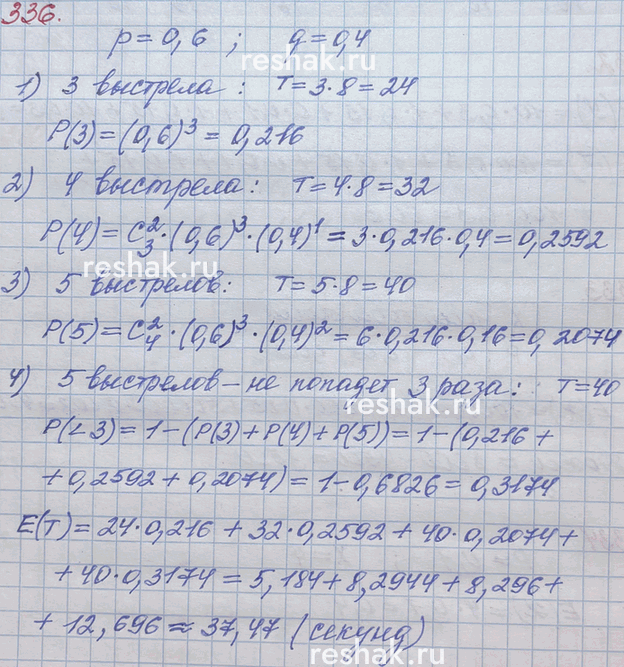 336.
p=0,6 ; q=0,4
reshak.ru
1) 3 выстрела : T=3·8=24
P(3)=(0,6)³=0,216
2) 4 выстрела: T=4·8=32
P(4)=C₃²·(0,6)³·(0,4)¹=3·0,216·0,4=0,2592
reshak.ru
3) 5 выстрелов: T=5·8=40
P(5)=C₄²·(0,6)³·(0,4)²=6·0,216·0,16=0,2074
4) 5 выстрелов – не попадет 3 раза: T=40
reshak.ru
P(<3)=1-(P(3)+P(4)+P(5))=1-(0,216+
+0,2592+0,2074)=1-0,6826=0,3174
E(T)=24·0,216+32·0,2592+40·0,2074+
+40·0,3174=5,184+8,2944+8,296+
+12,696≈37,47 (секунд)
reshak.ru